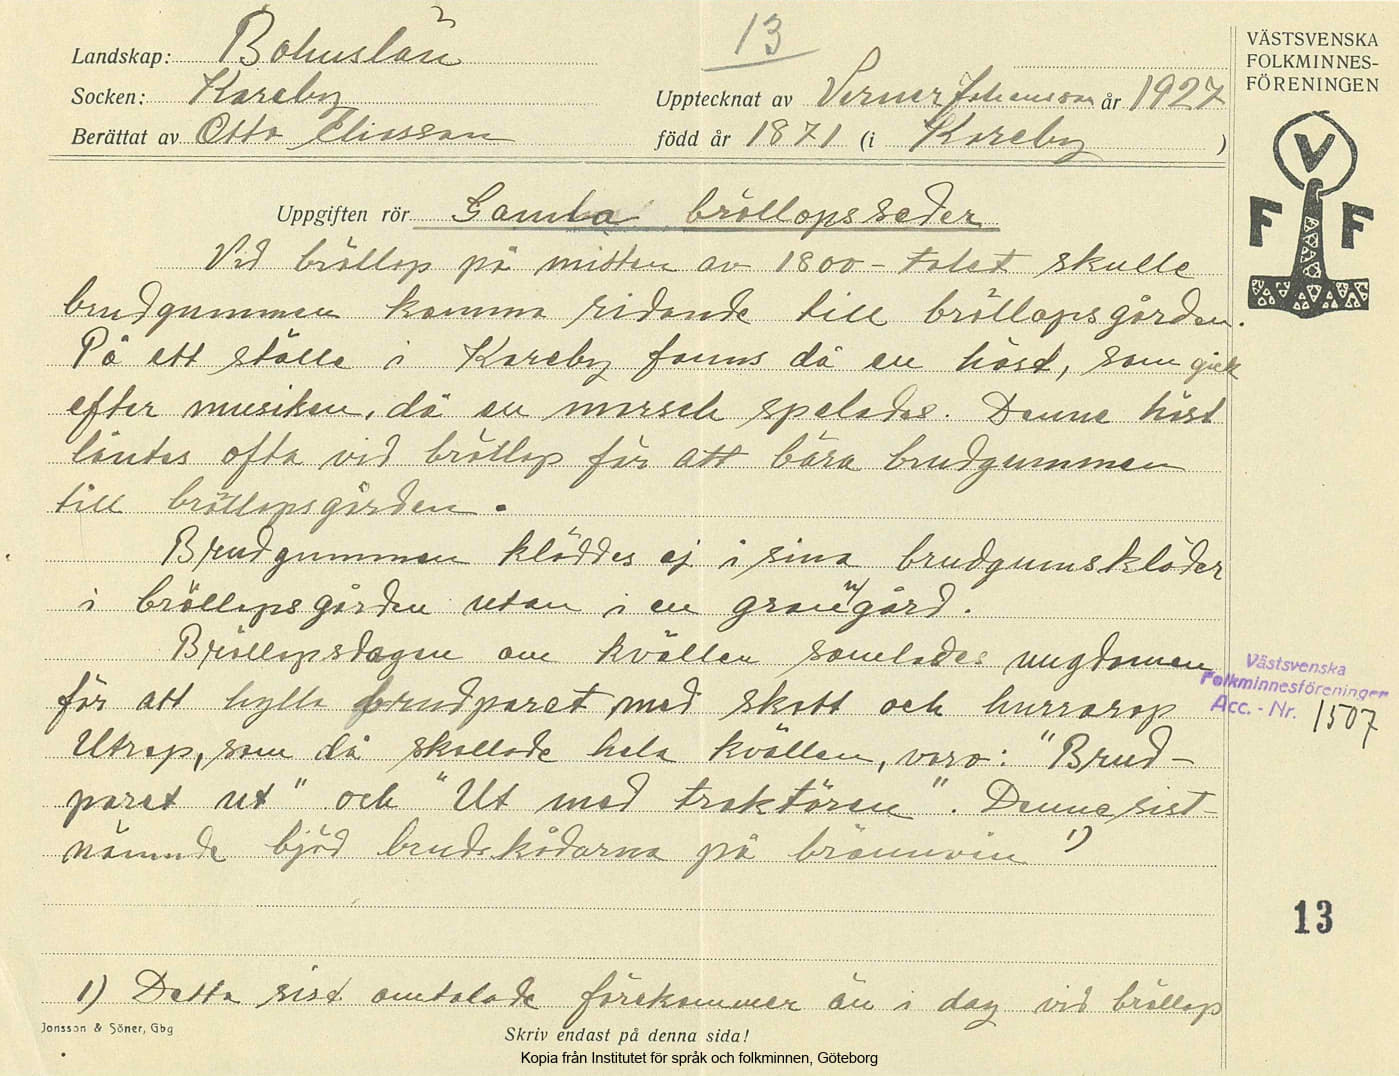 13
Landskap: Bohuslän
Socken: Kareby
Upptecknat av Verner Johansson år 1927
Berättat av Otto Eliasson född år 1871 (i Kareby)
VÄSTSVENSKA
FOLKMINNES-
FÖRENINGEN
V
F F
Uppgiften rör Gamla bröllopsseder
Vid bröllop på mitten av 1800-talet skulle
brudgummen komma ridande till bröllopsgården.
På ett ställe i Kareby fanns då en häst, som gick
efter musiken, då en marsch spelades. Denne häst
låntes ofta vid bröllop för att bära brudgummen
till bröllopsgården.
Brudgummen kläddes ej i sina brudgumskläder
i bröllopsgården utan i en granngård.
Bröllopsdagen om kvällen samlades ungdomen
för att hylla brudparet med skott och hurrarop
Utrop, som då skallade hela kvällen, voro: "Brud-
paret ut" och "Ut med traktören". Denne sist-
nämnde bjöd brudskådarna på brännvin 1)
Västsvenska
Folkminnesföreningen
Acc. - Nr. 1507
13
1) Detta sist omtalade förekommer än i dag vid bröllop
Jonsson & Söner, Gbg
Skriv endast på denna sida!
Kopia från Institutet för språk och folkminnen, Göteborg